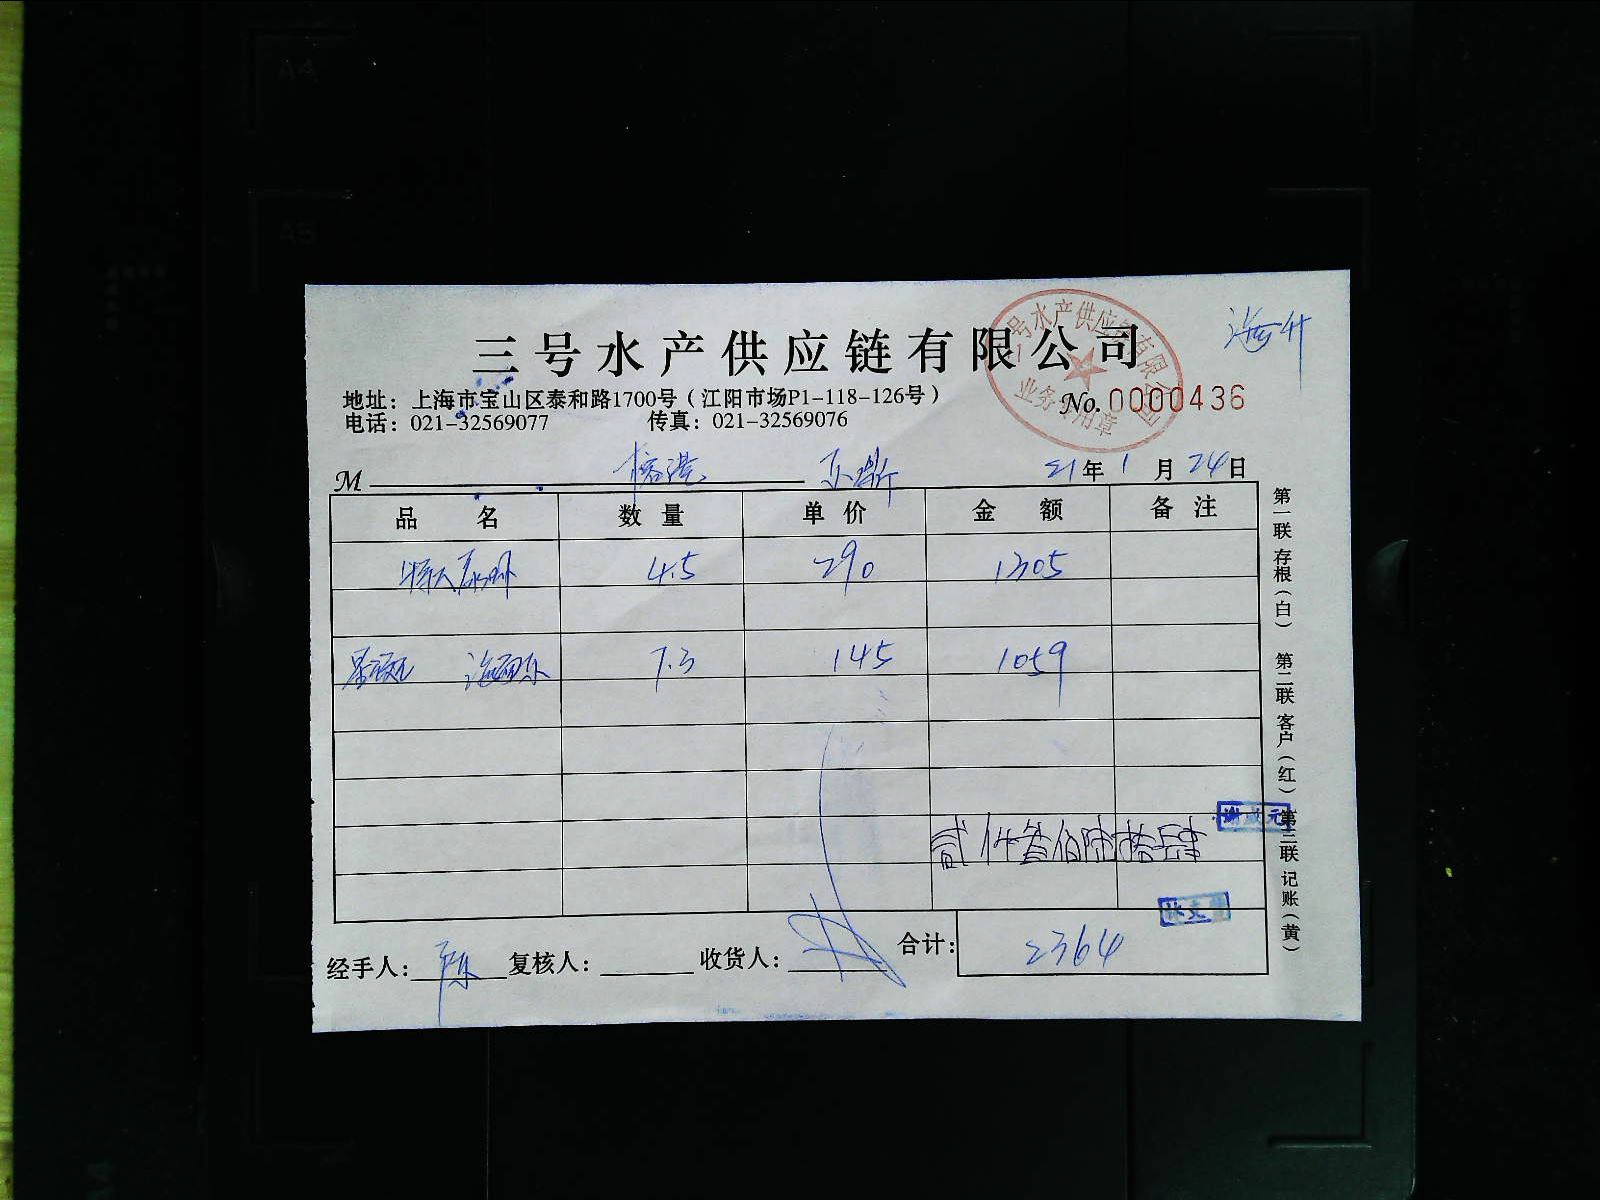 三号水产供应链有限公司
地址：上海市宝山区泰和路1700号（江阳市场P1-118-126号）
电话：021-32569077 传真：021-32569076
No. 0000436
三号水产供应链有限公司
业务专用章
M 榕港 21年1月24日
品名 数量 单价 金额 备注
4.5 290 1305
7.3 145 1059
贰仟叁佰陆拾肆
经手人： 陈 复核人： 收货人： 合计： 2364
第一联 存根（白） 第二联 客户（红） 第三联 记账（黄）